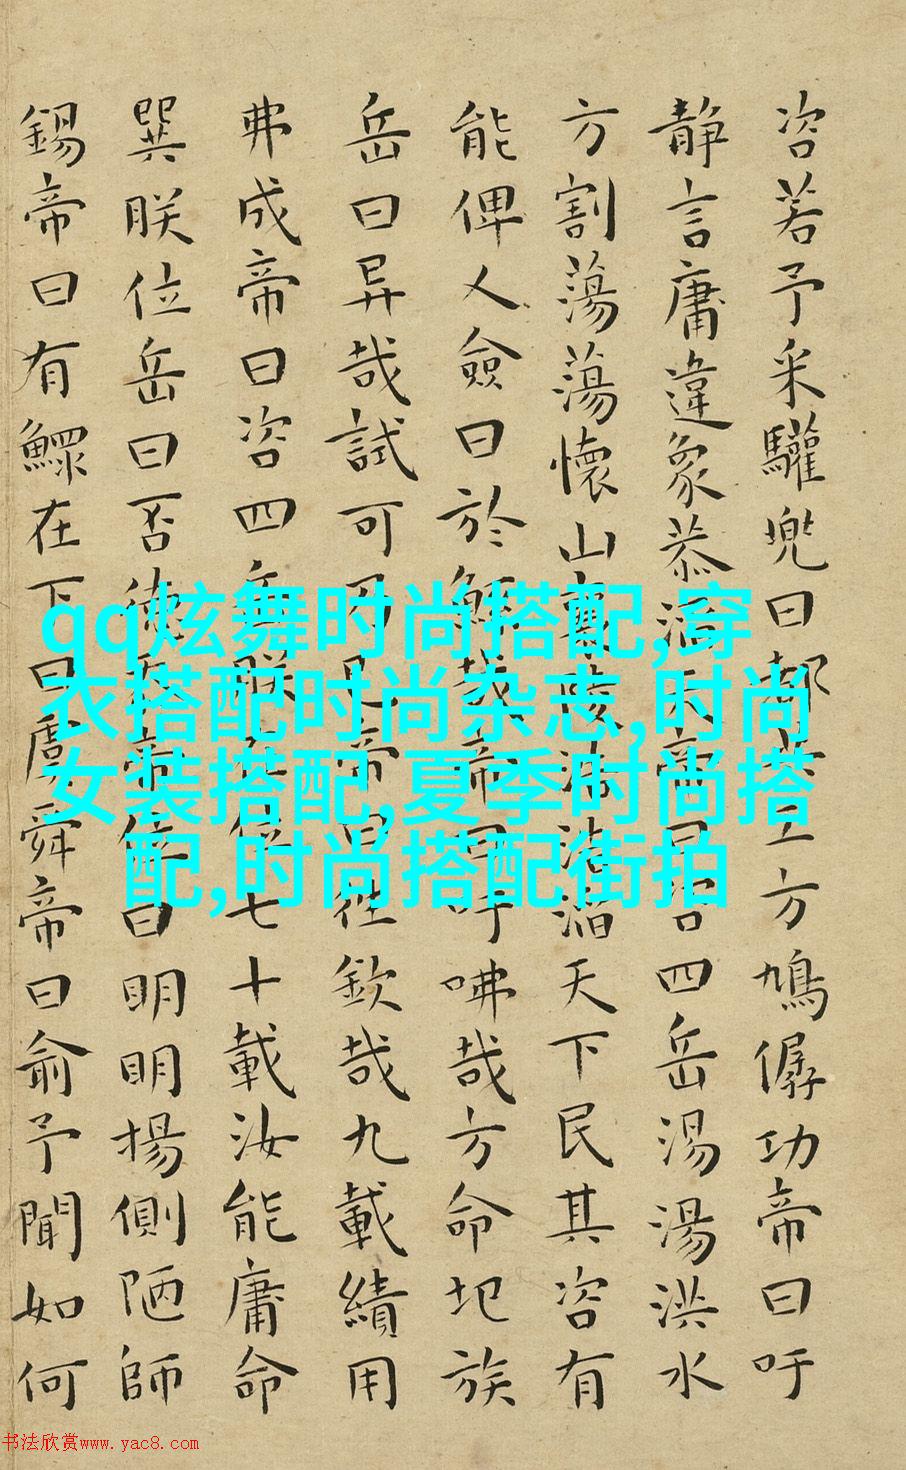 咨若予采驩兜曰都共工方鳩僝功帝曰吁
静言庸違象恭滔天帝曰咨四岳湯湯洪水
方割蕩蕩懷山襄陵浩浩滔天下民其咨有
能俾乂僉曰於鯀哉帝曰吁咈哉方命圮族
岳曰异哉試可乃已帝曰往欽哉九載績用
弗成帝曰咨四岳朕在位七十載汝能庸命
巽朕位岳曰否德忝帝位曰明明揚側陋師
錫帝曰有鰥在下曰虞舜帝曰俞予聞如何
qq炫舞时尚搭配,穿
衣搭配时尚杂志,时尚
女装搭配,夏季时尚搭
配,时尚搭配街拍
书法欣赏www.yac8.com